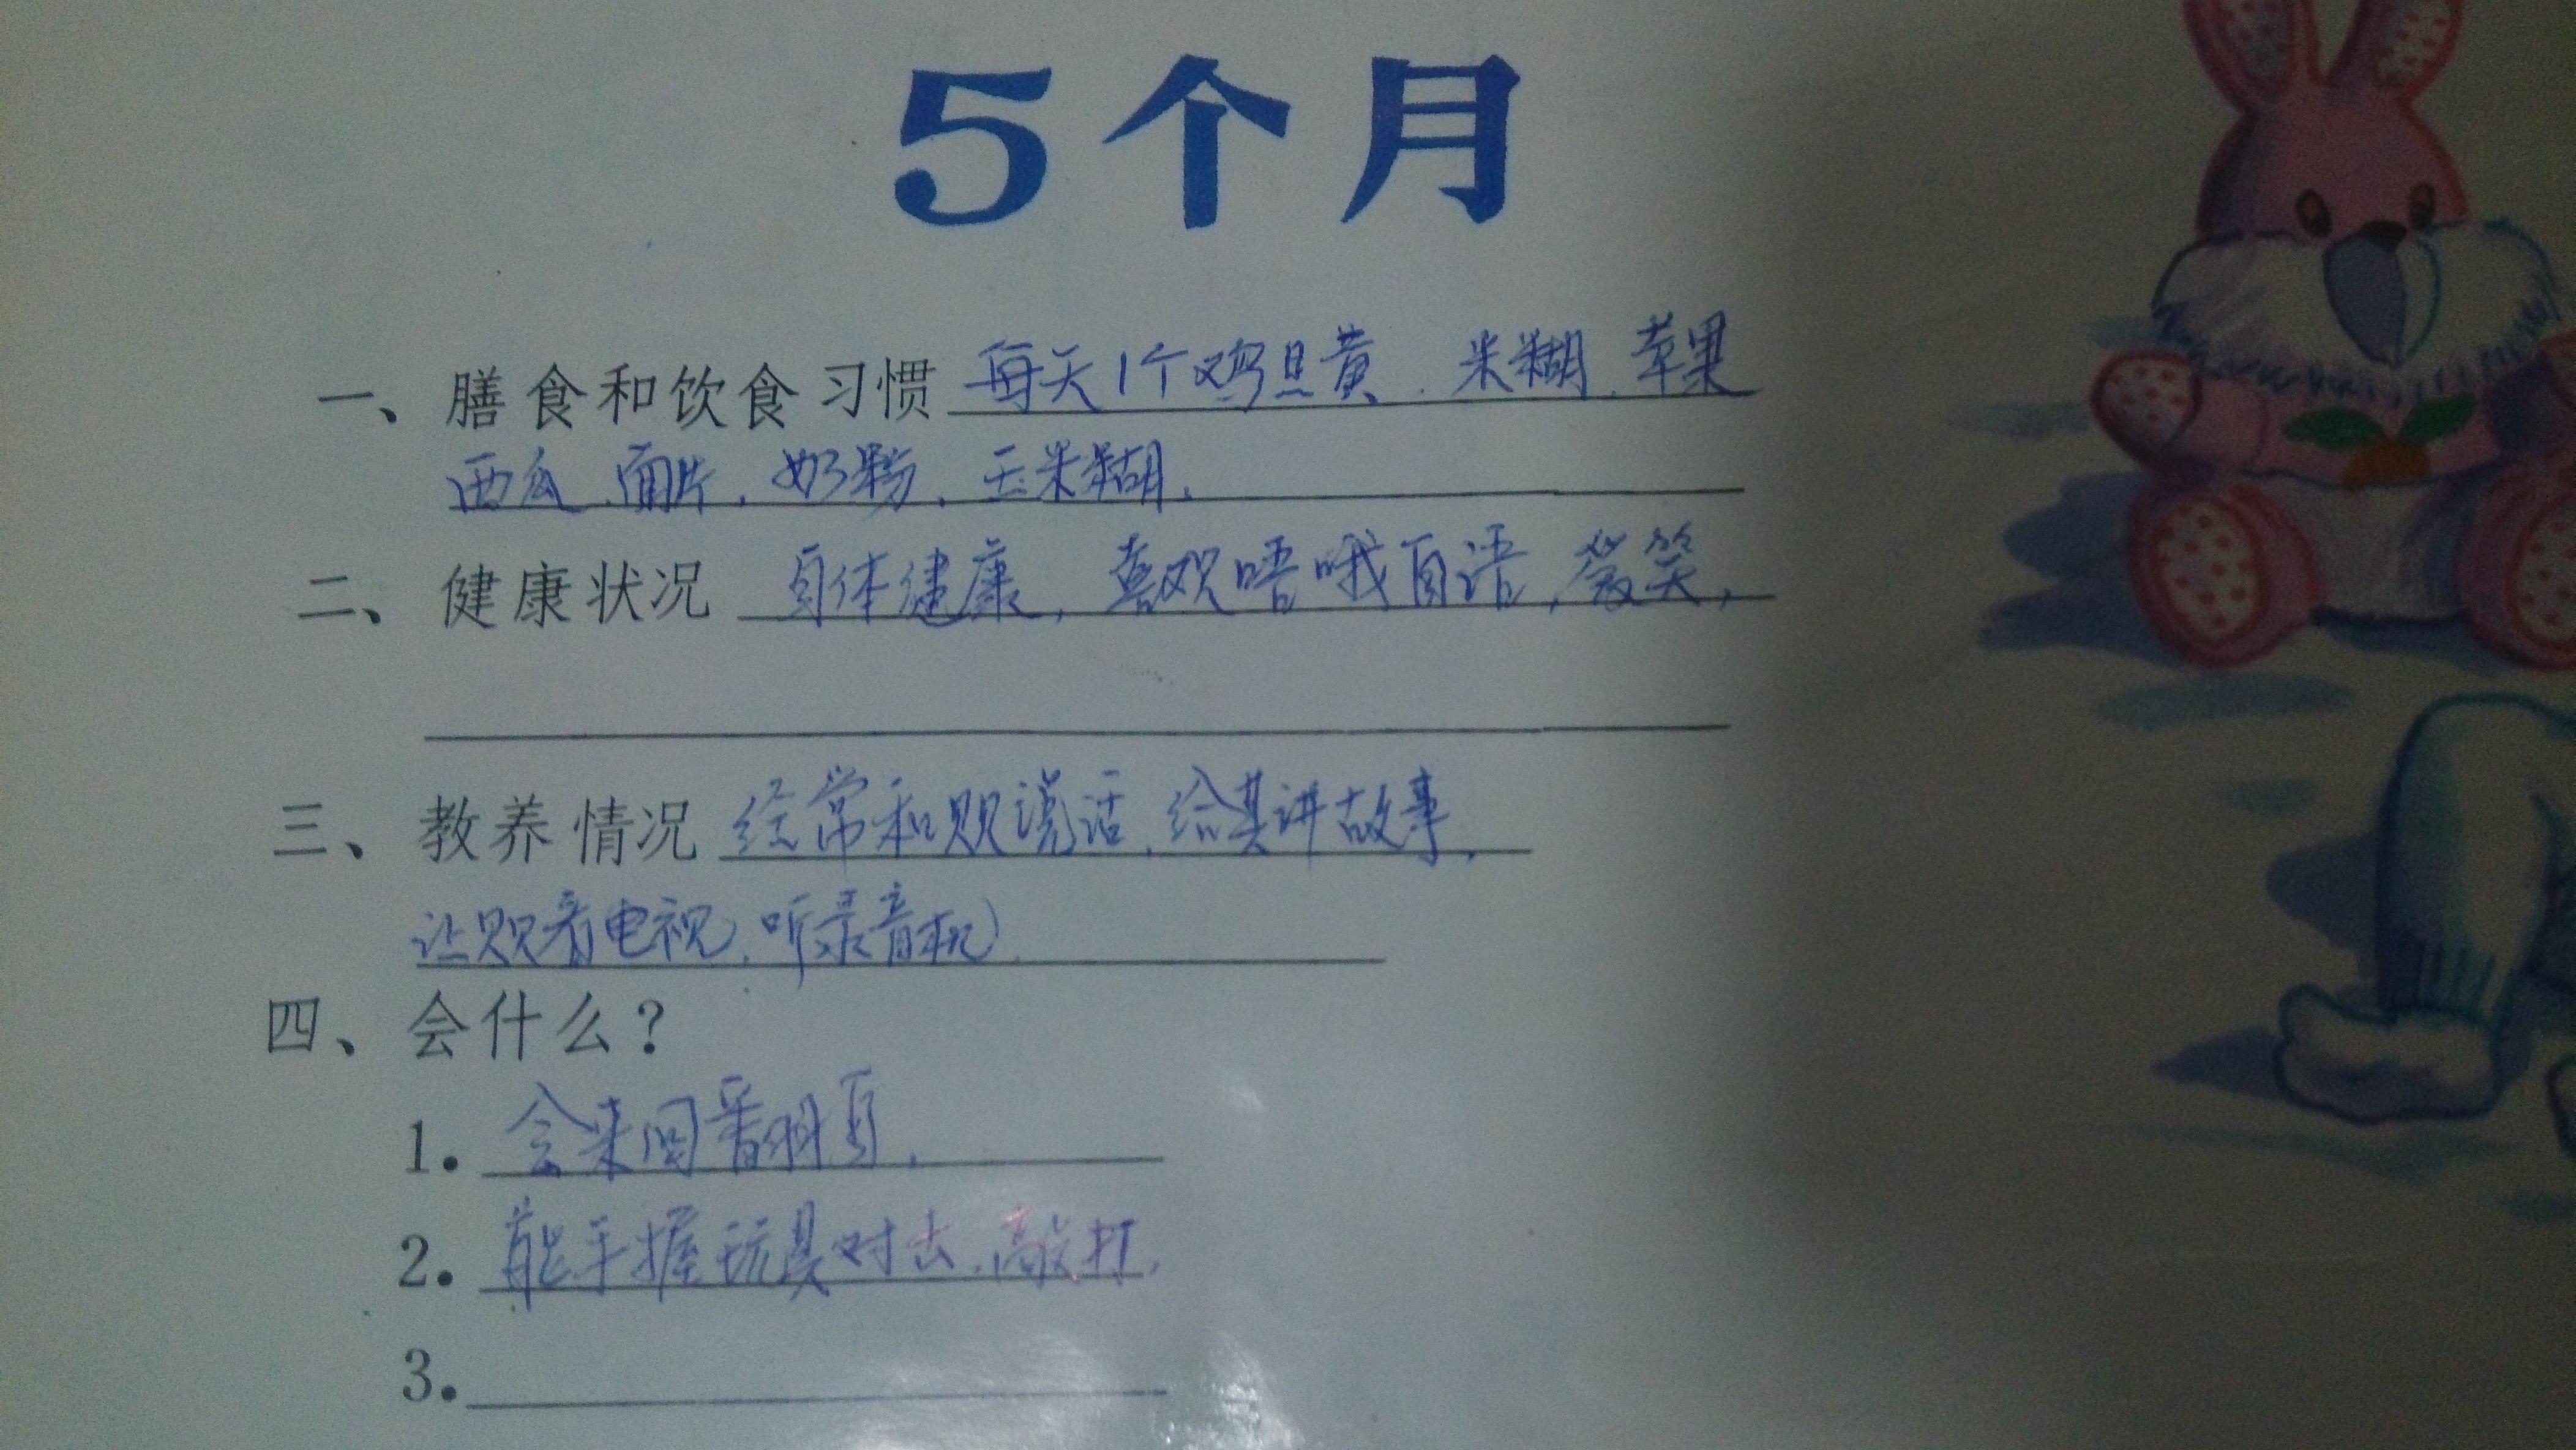 5个月
一、膳食和饮食习惯 每天1个鸡旦黄、米糊、苹果
西瓜、面片、奶粉、玉米糊。
二、健康状况 身体健康，喜欢唔哦自语，微笑，
三、教养情况 经常和贝贝说话、给其讲故事，
让贝贝看电视、听录音机。
四、会什么？
1. 会来回翻身。
2. 能手握玩具对击、敲打。
3.